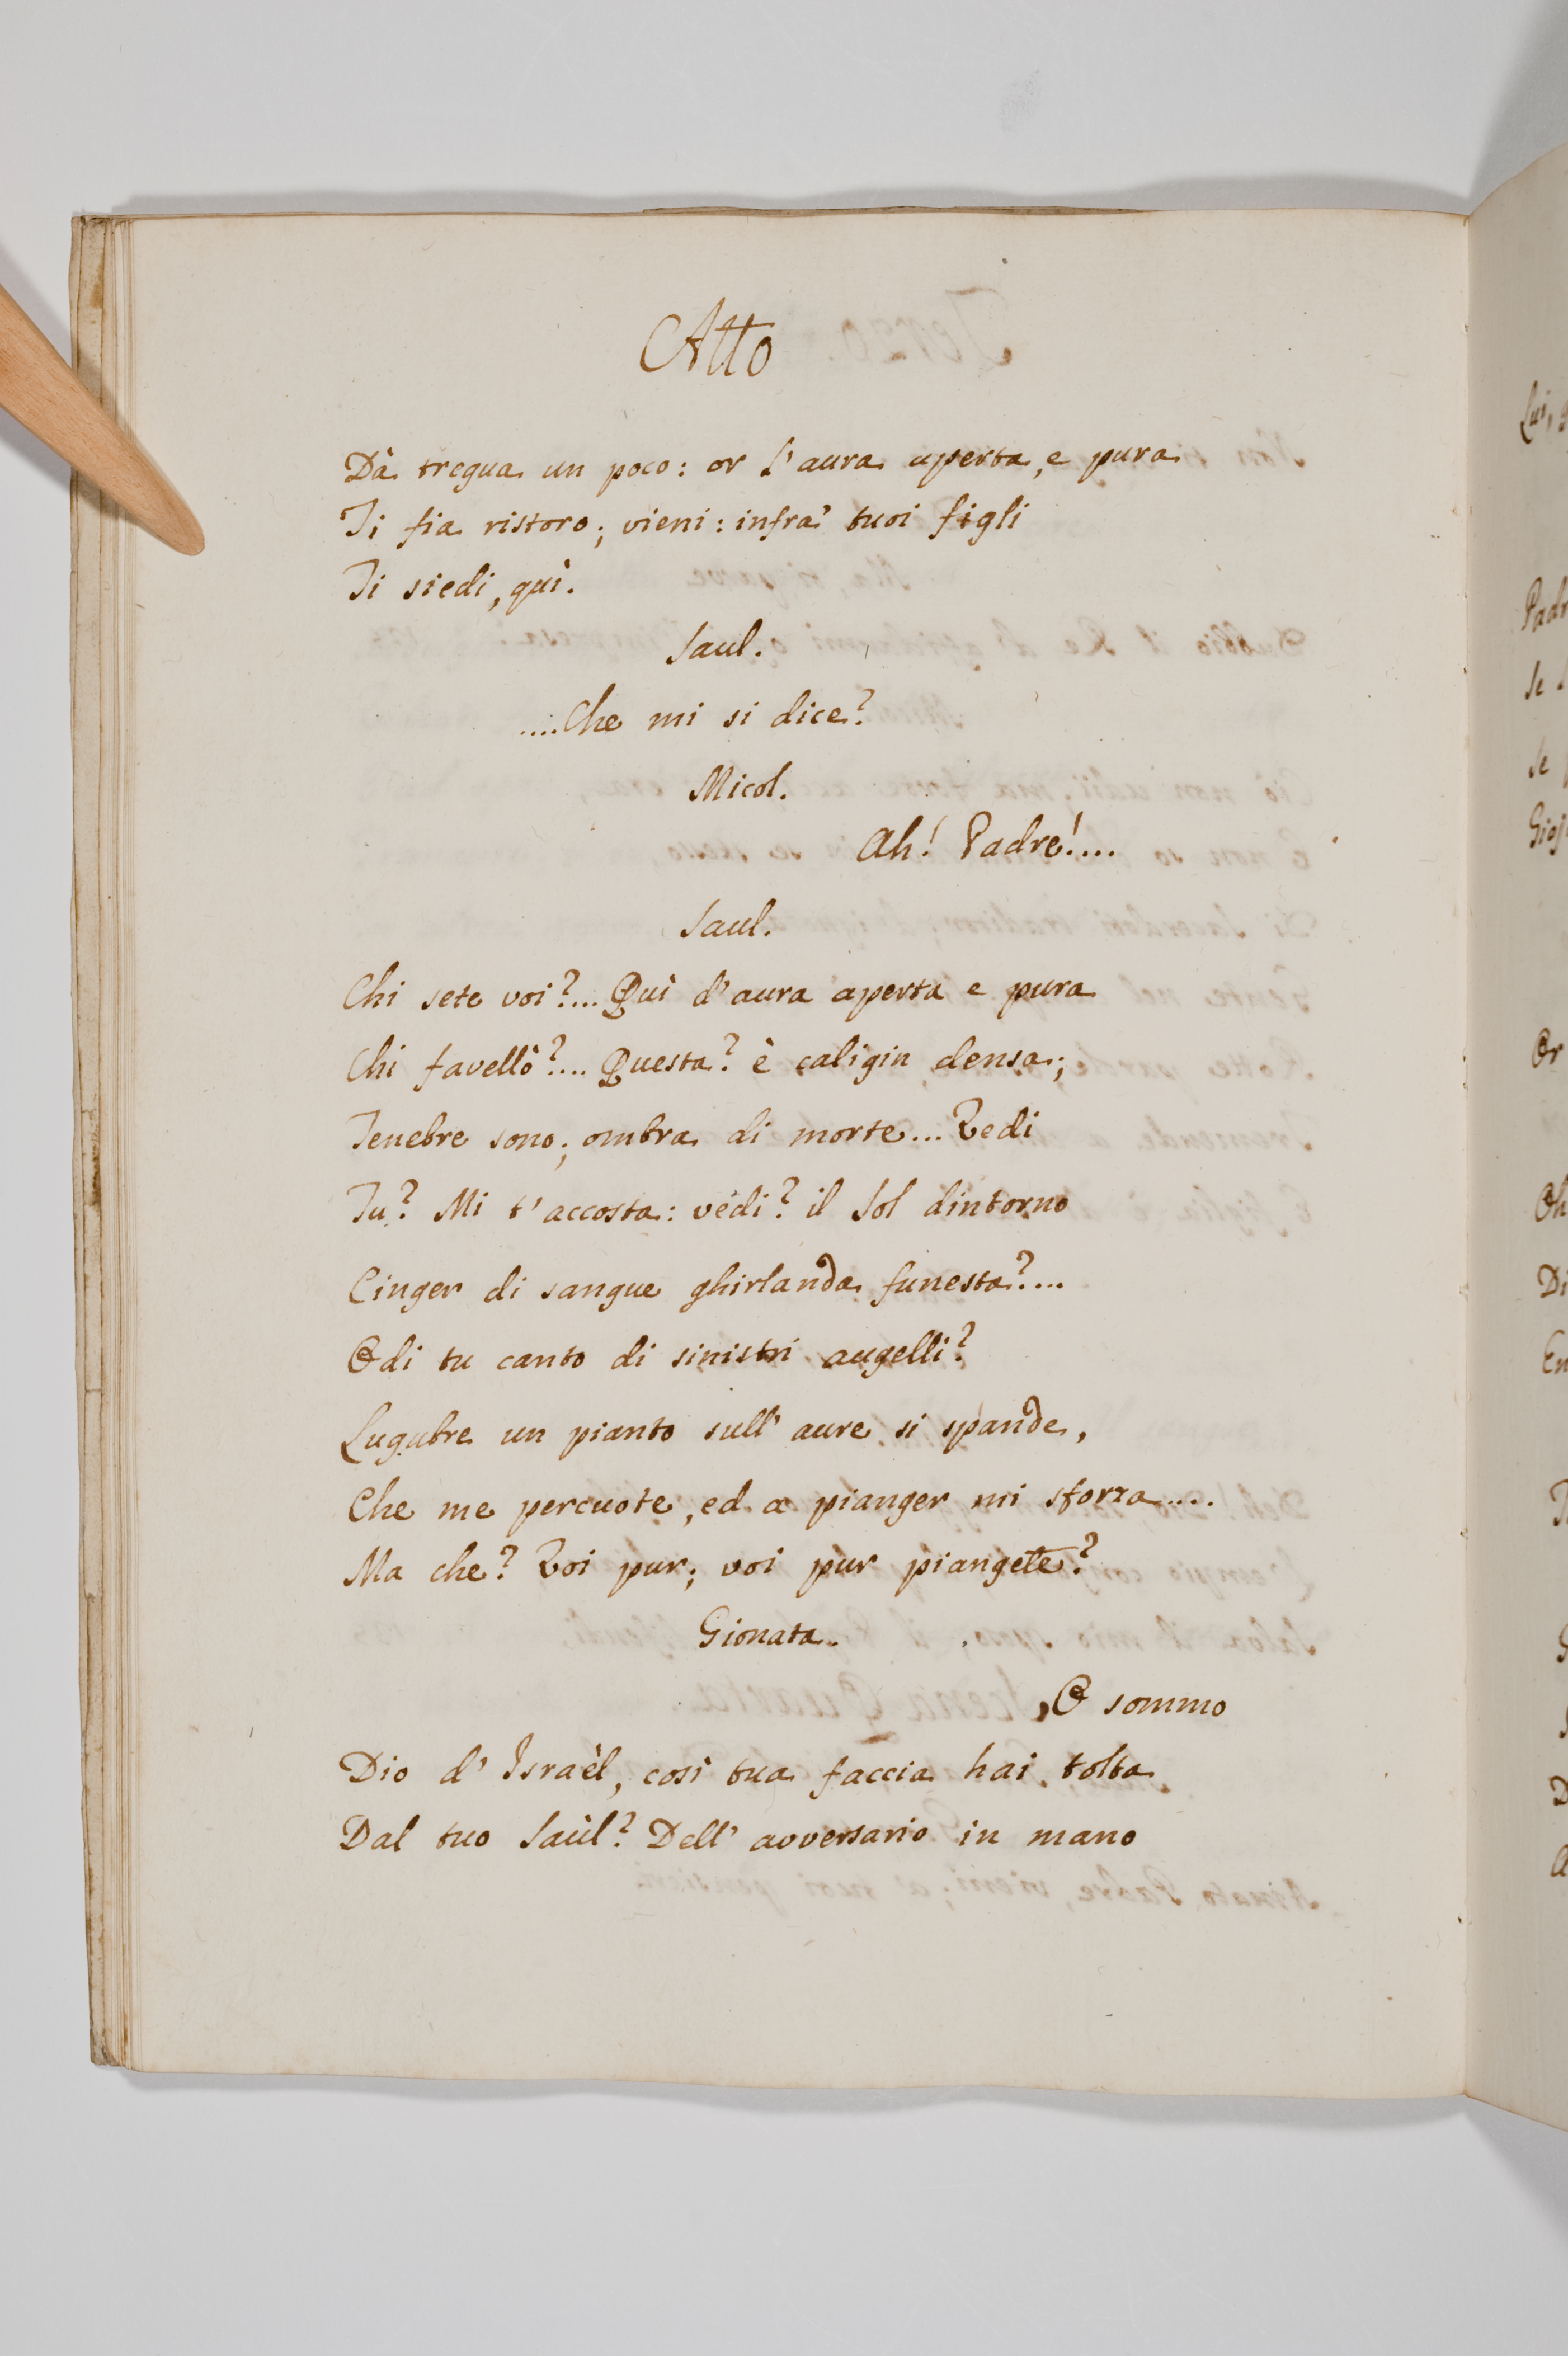 Atto
Dà tregua un poco: or l'aura aperta, e pura
Ti fia ristoro; vieni: infra' tuoi figli
Ti siedi, quì.
Saul.
....Che mi si dice?
Micol.
Ah! Padre!....
Saul.
Chi sete voi?.... Quì d'aura aperta e pura
Chi favellò?.... Questa? è caligin densa;
Tenebre sono; ombra di morte... Vedi
Tu? Mi t'accosta: vedi? il Sol dintorno
Cinger di sangue ghirlanda funesta?....
Odi tu canto di sinistri augelli?
Lugubre un pianto sull' aure si spande,
Che me percuote, ed a pianger mi sforza....
Ma che? Voi pur; voi pur piangete?
Gionata.
O sommo
Dio d' Israèl, così tua faccia hai tolta
Dal tuo Saùl? Dell' avversario in mano